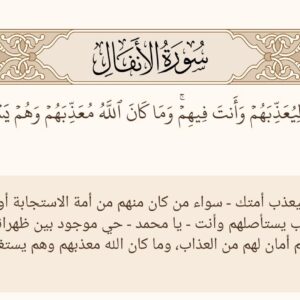 سُورَةُ الأَنفَالِ
لِيُعَذِّبَهُمْ وَأَنتَ فِيهِمْ ۚ وَمَا كَانَ ٱللَّهُ مُعَذِّبَهُمْ وَهُمْ
يعذب أمتك - سواء من كان منهم من أمة الاستجابة أو
يستأصلهم وأنت - يا محمد - حي موجود بين
أمان لهم من العذاب، وما كان الله معذبهم وهم